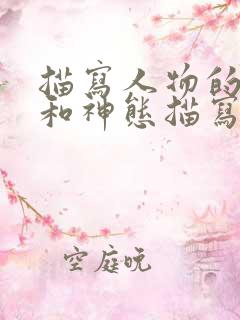 描寫人物的
和神態描寫
空庭晚